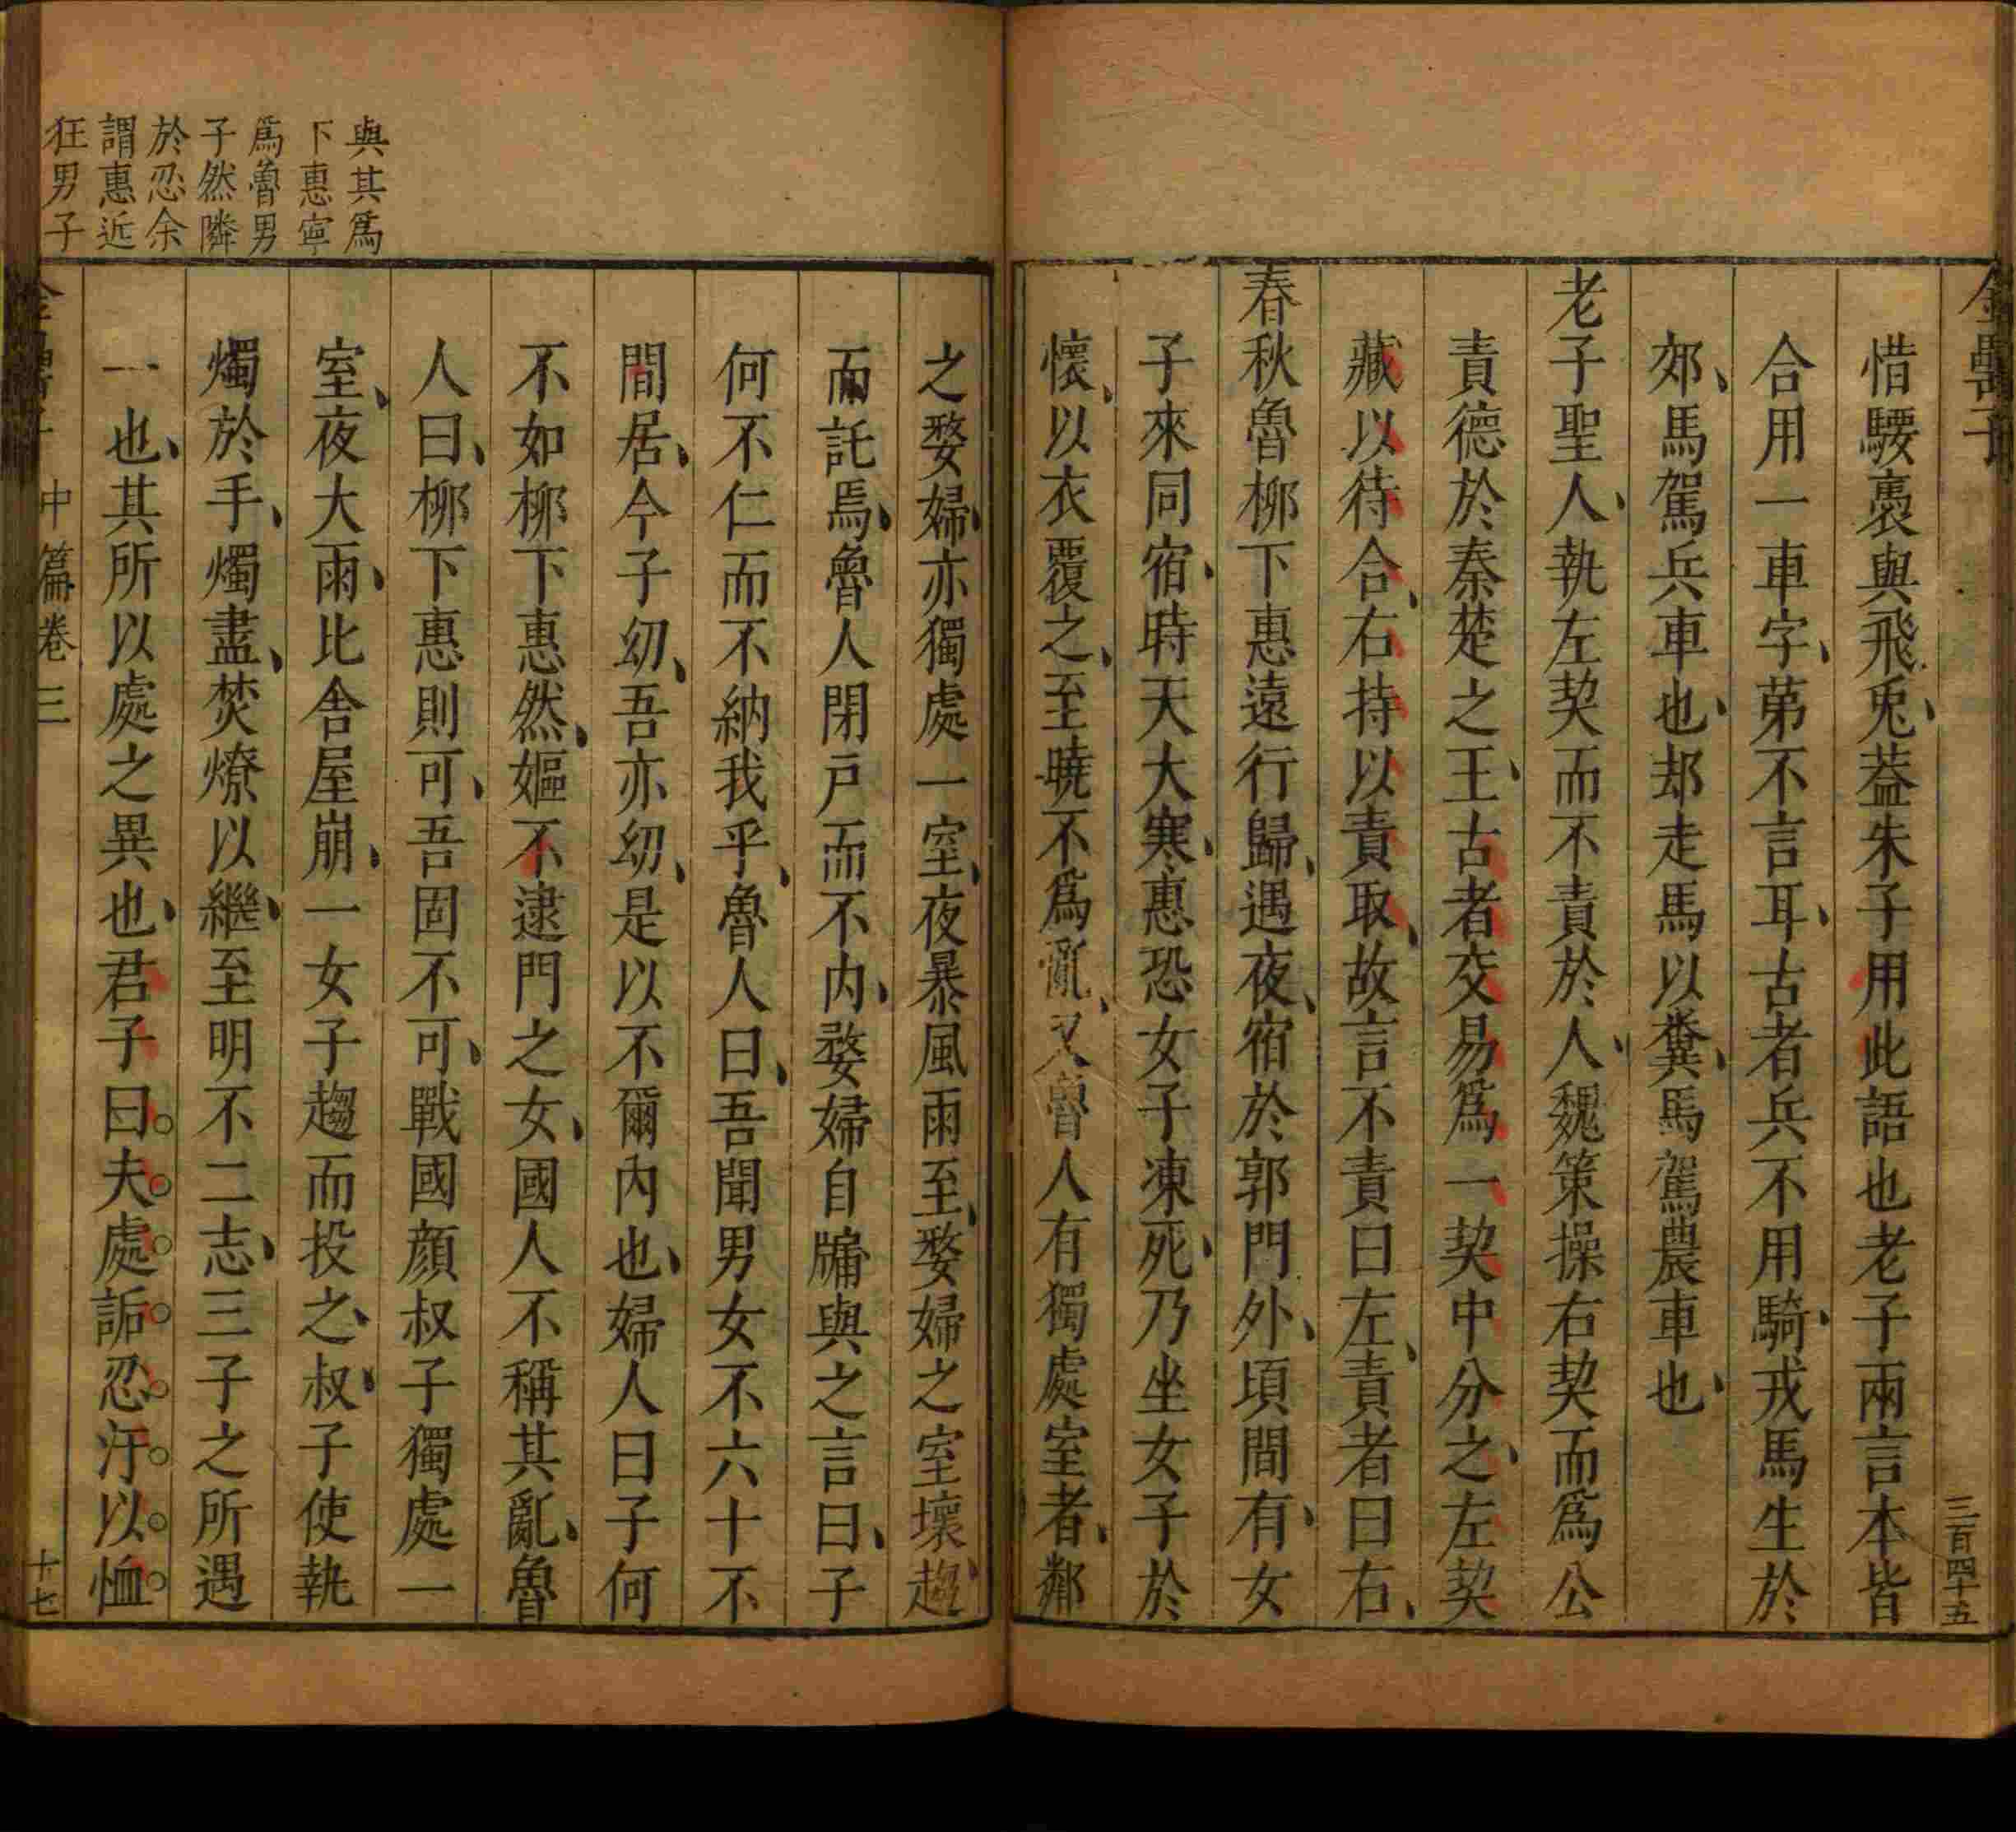 三百四十五
惜騕褭與飛兎葢朱子用此語也老子兩言本皆
合用一車字苐不言耳古者兵不用騎戎馬生於
郊馬駕兵車也却走馬以糞馬駕農車也
老子聖人執左契而不責於人魏策操右契而爲公
責德於秦楚之王古者交易爲一契中分之左契
藏以待合右持以責取故言不責曰左責者曰右
春秋魯柳下惠遠行歸遇夜宿於郭門外頃間有女
子來同宿時天大寒惠恐女子凍死乃坐女子於
懷以衣覆之至曉不爲亂又魯人有獨處室者鄰
之婺婦亦獨處一室夜暴風雨至婺婦之室壞趨
而託焉魯人閉戸而不内婺婦自牖與之言曰子
何不仁而不納我乎魯人曰吾聞男女不六十不
間居今子幼吾亦幼是以不爾内也婦人曰子何
不如柳下惠然嫗不逮門之女國人不稱其亂魯
人曰柳下惠則可吾固不可戰國顔叔子獨處一
室夜大雨比舍屋崩一女子趨而投之叔子使執
燭於手燭盡焚燎以繼至明不二志三子之所遇
一也其所以處之異也君子曰夫處詬忍汙以恤
中篇卷三
十七
與其爲
下惠寧
爲魯男
子然隣
於忍余
謂惠近
狂男子